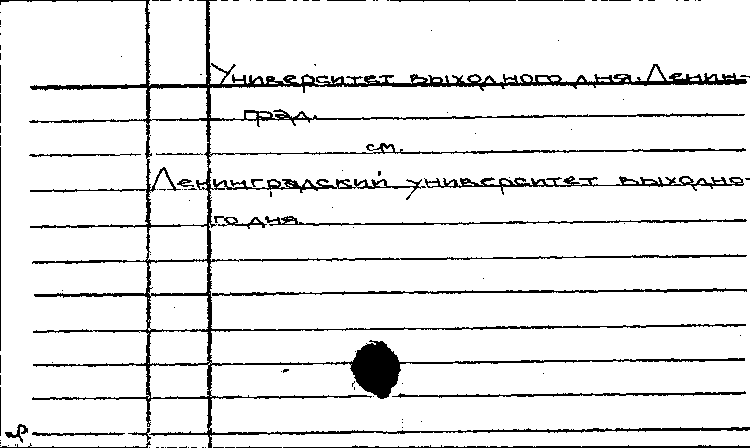 Университет выходного дня. Ленин-
град.
см.
Ленинградский университет выходно-
го дня.